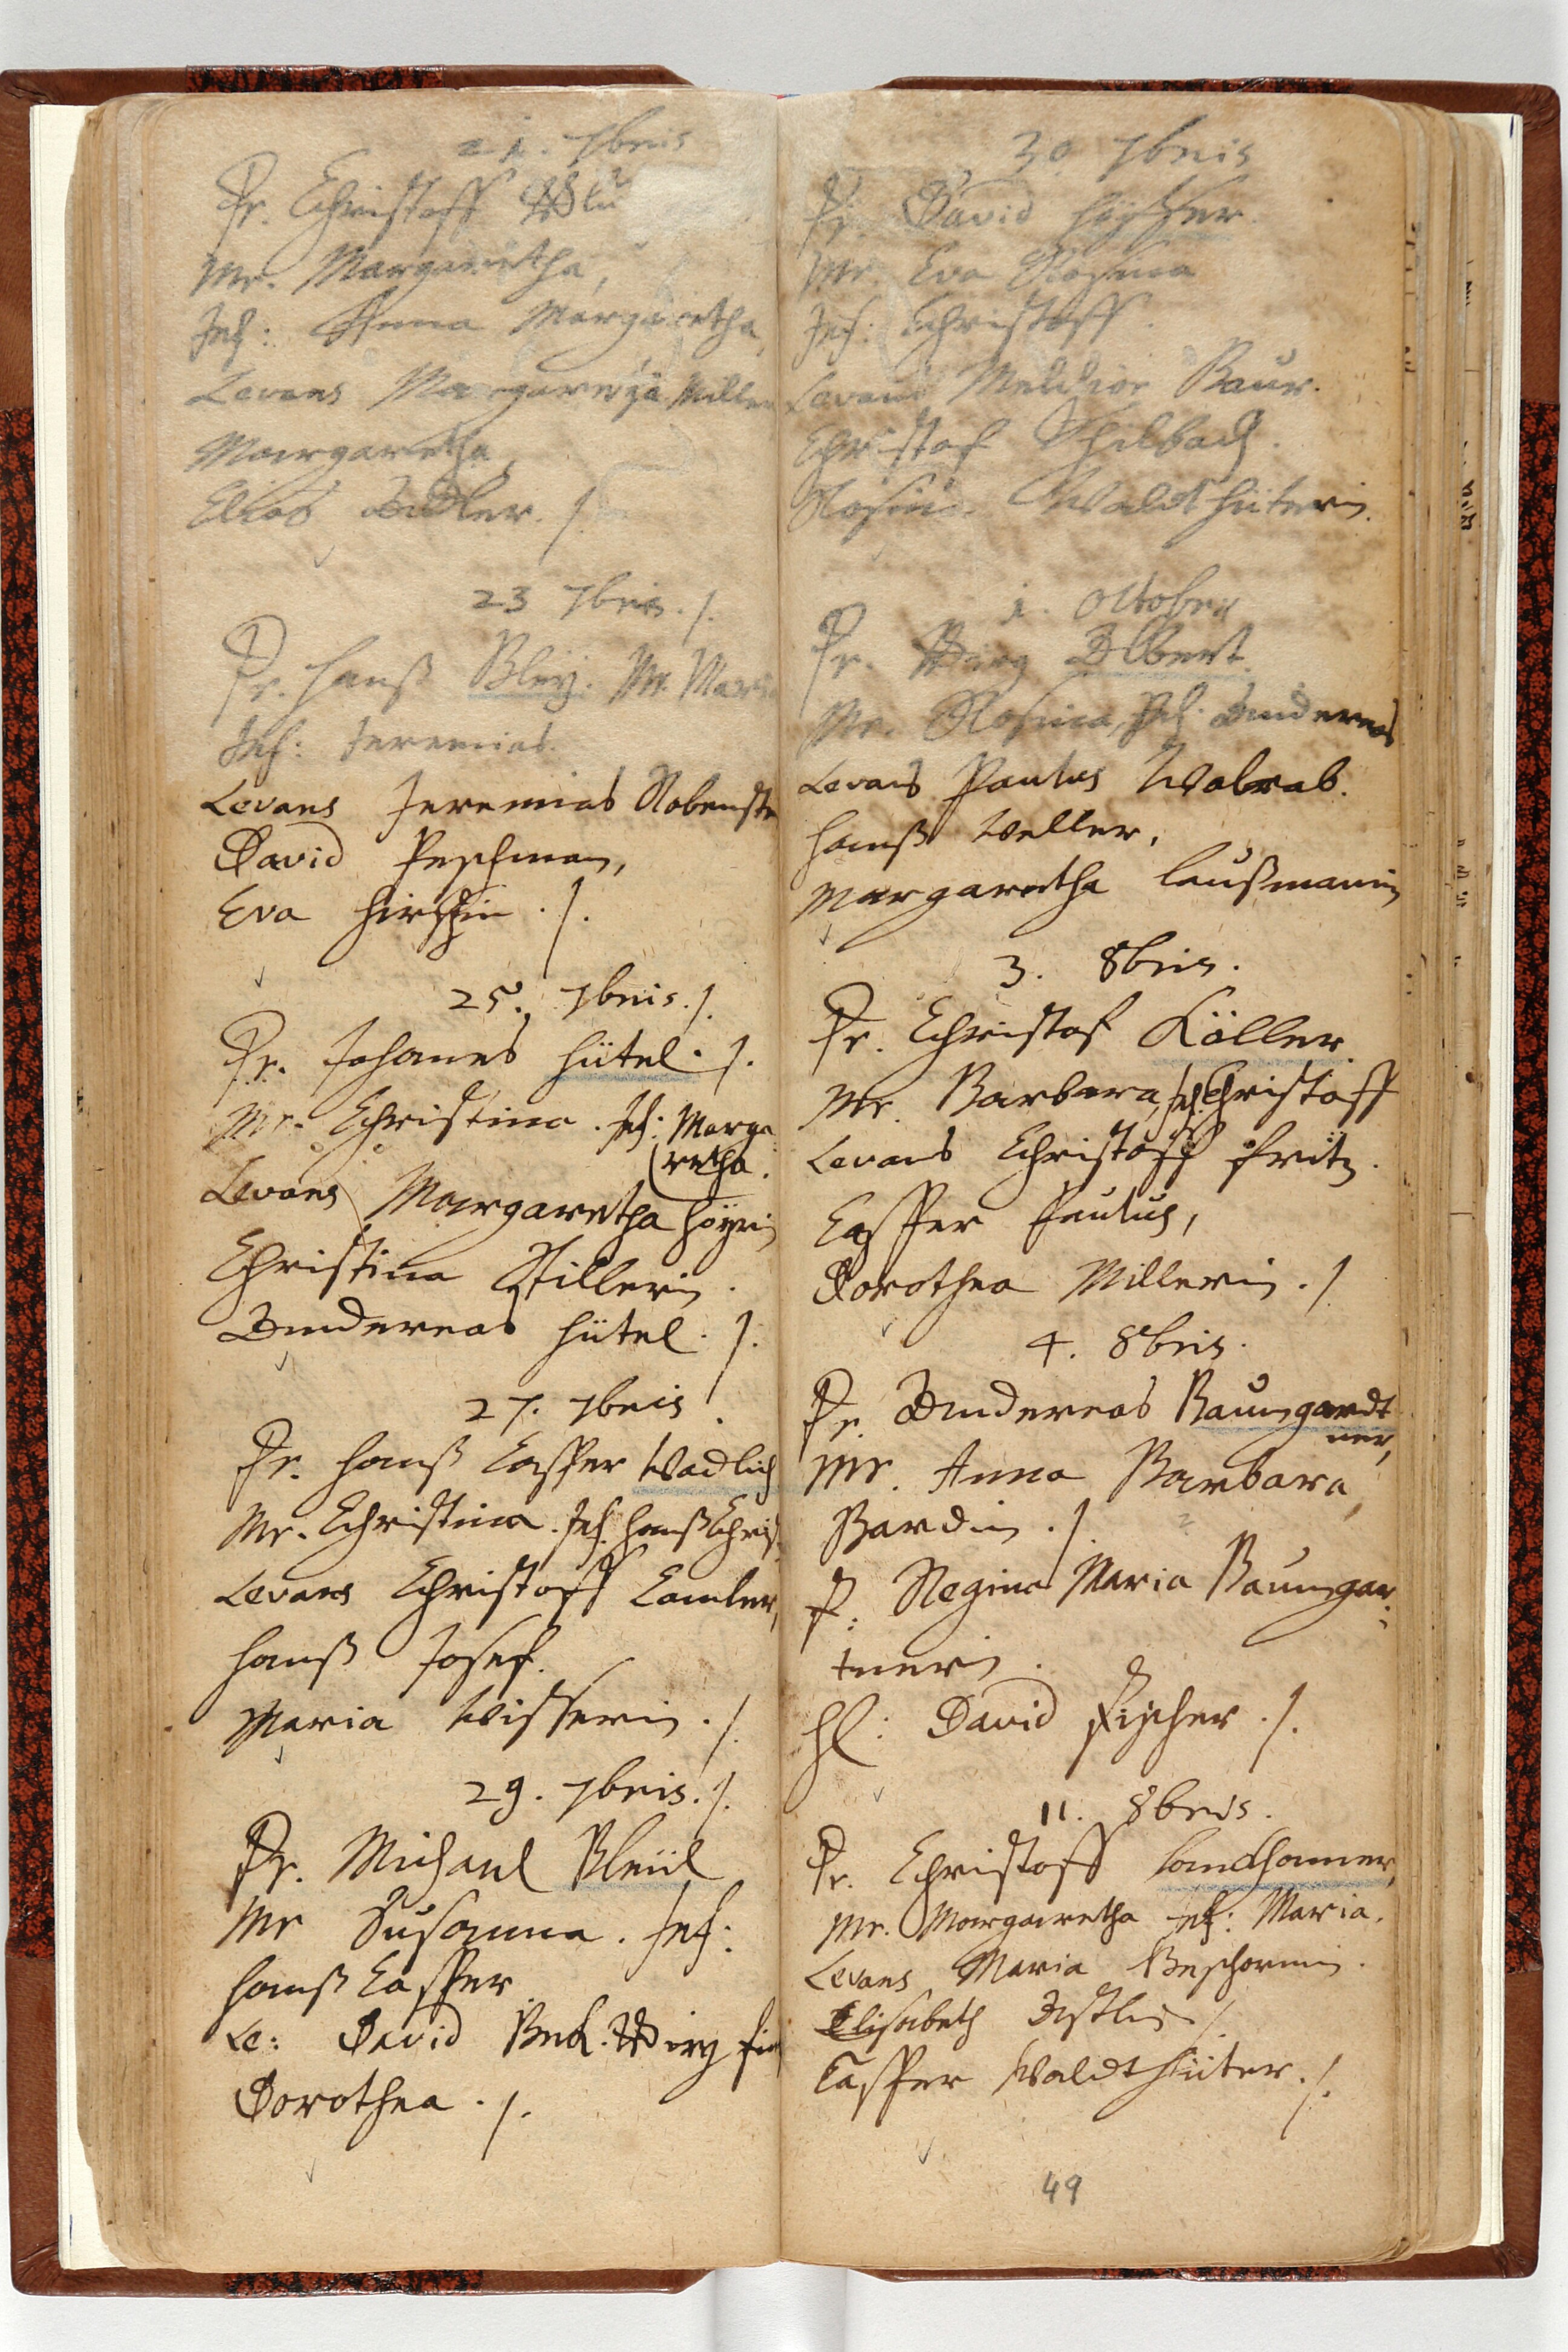 21. 7bris
Pr. Christoff
Mr. Margaretha,
Inf: Anna Margaretha,
Levans Margaretha Miller
Margaretha
Elias Adler. /.
23 7bris. /.
Pr. Hanß Bley. Mr. Maria
Inf: Jeremias.
Levans Jeremias Robenste
David Peschman,
Eva Hirschin. /.
25. 7bris. /.
Pr. Johanes Hütel. /.
Mr. Christina. Inf: Marga
(retha.
Levans Margaretha Höyin
Christina Stillerin.
Andereas Hütel. /.
27. 7bris.
Pr. Hanß Casper Wadlich
Mr. Christina. Inf. Hanß Chris
Levans Christoff Camler,
Hanß Josef.
Maria Wisserin. /.
29. 7bris. /.
Pr. Michael Bleül
Mr Susanna. Inf:
Hanß Casper
Le: David Beck. Görg
Dorothea. /.
30 7bris
Pr. David Höyffer.
Mr. Eva Rosina
Inf: Christoff.
Levans Melchior Baur.
Christof Schilbach.
Rosina Waldthüterin.
1. October
Pr. Görg Albert.
Mr. Rosina, Inf. Andereas
Levans Paulus Walrab.
Hanß Weller,
Margaretha Laußmanin
3. 8bris.
Pr. Christof Köller.
Mr. Barbara, Inf. Christoff
Levans Christoff Fritz.
Casper Paulus,
Dorothea Millerin. /.
4. 8bris.
Pr. Andereas Baumgardt
ner,
Mr. Anna Barbara,
Bardin. /.
P: Regina Maria Baumgar:
tnerin.
Hl: David Fischer. /.
11. 8bris.
Pr. Christoff Landhamer,
Mr. Margaretha Inf: Maria.
Levans Maria Beschornin.
Elisabeth Astlin /.
Casper Waldthüter. /.
49